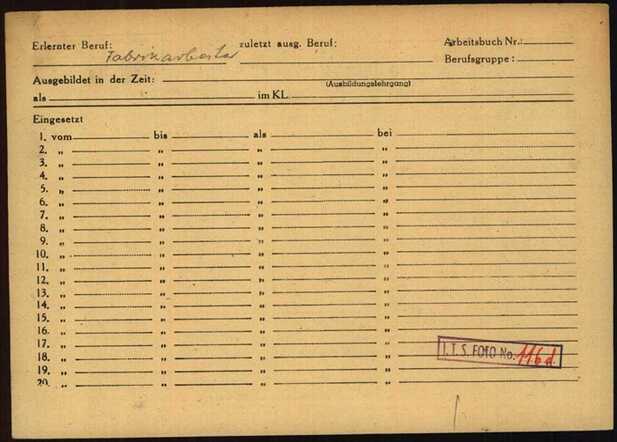 Erlernter Beruf: Fabrikarbeiter zuletzt ausg. Beruf: Arbeitsbuch Nr.:
Berufsgruppe:
Ausgebildet in der Zeit:
(Ausbildungslehrgang)
als im KL.
Eingesetzt
1. vom bis als bei
2. „ „ „ „
3. „ „ „ „
4. „ „ „ „
5. „ „ „ „
6. „ „ „ „
7. „ „ „ „
8. „ „ „ „
9. „ „ „ „
10. „ „ „ „
11. „ „ „ „
12. „ „ „ „
13. „ „ „ „
14. „ „ „ „
15. „ „ „ „
16. „ „ „ „
17. „ „ „ „
18. „ „ „ „
19. „ „ „ „
20. „ „ „ „
I.T.S. FOTO No. 116d